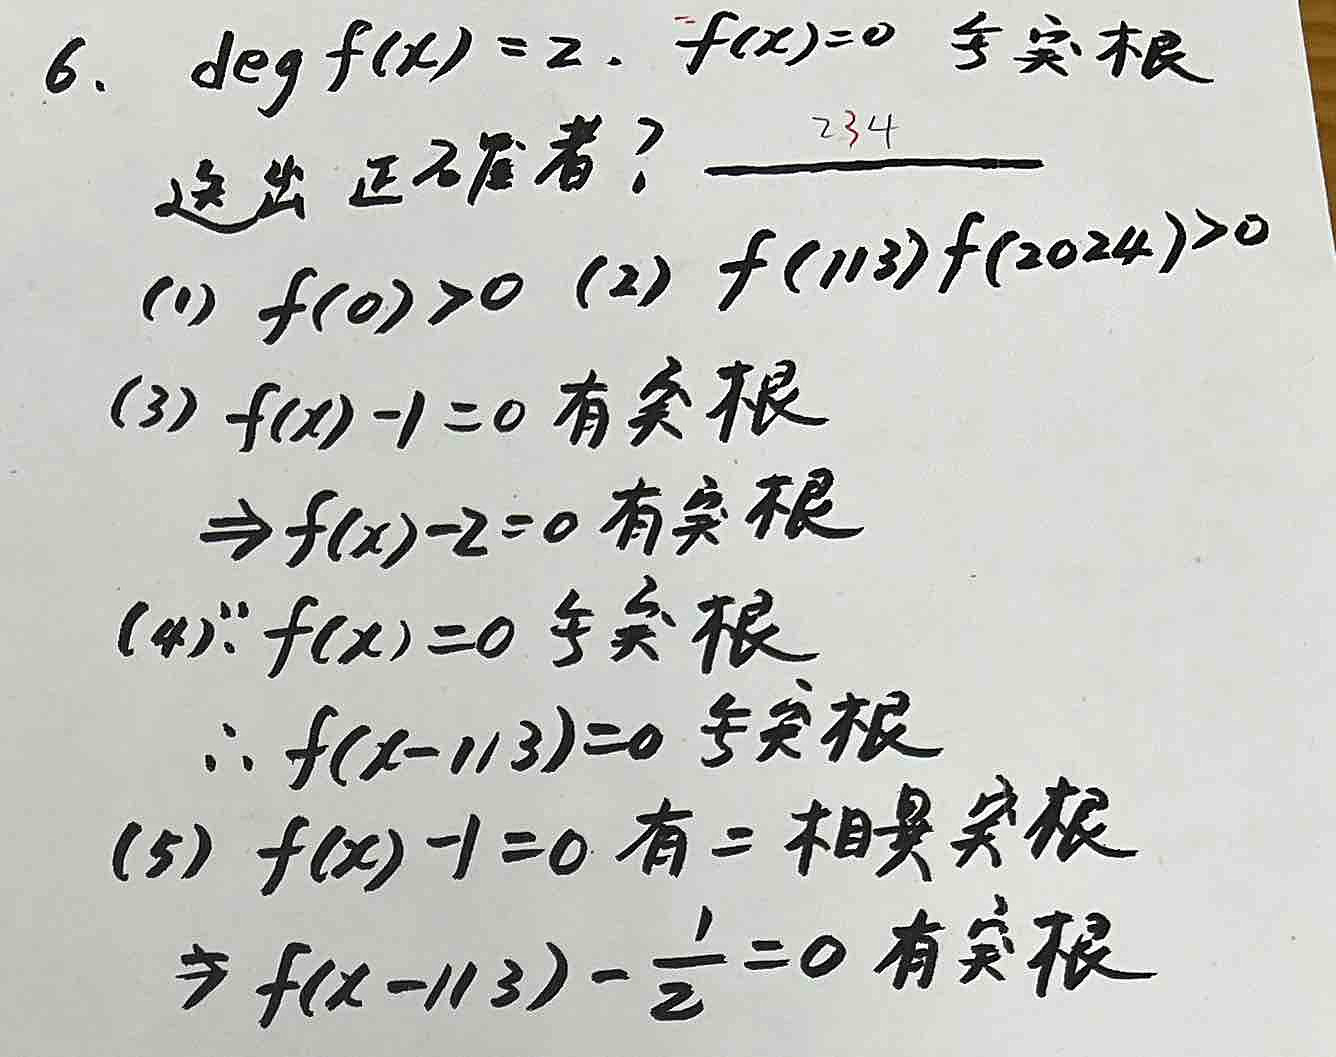 6. deg f(x)=2. f(x)=0 无实根
选出正确者? 234
(1) f(0)>0 (2) f(113)f(2024)>0
(3) f(x)-1=0 有实根
⇒f(x)-2=0 有实根
(4)∵f(x)=0 无实根
∴f(x-113)=0 无实根
(5) f(x)-1=0 有二相異实根
⇒f(x-113)-1/2=0 有实根